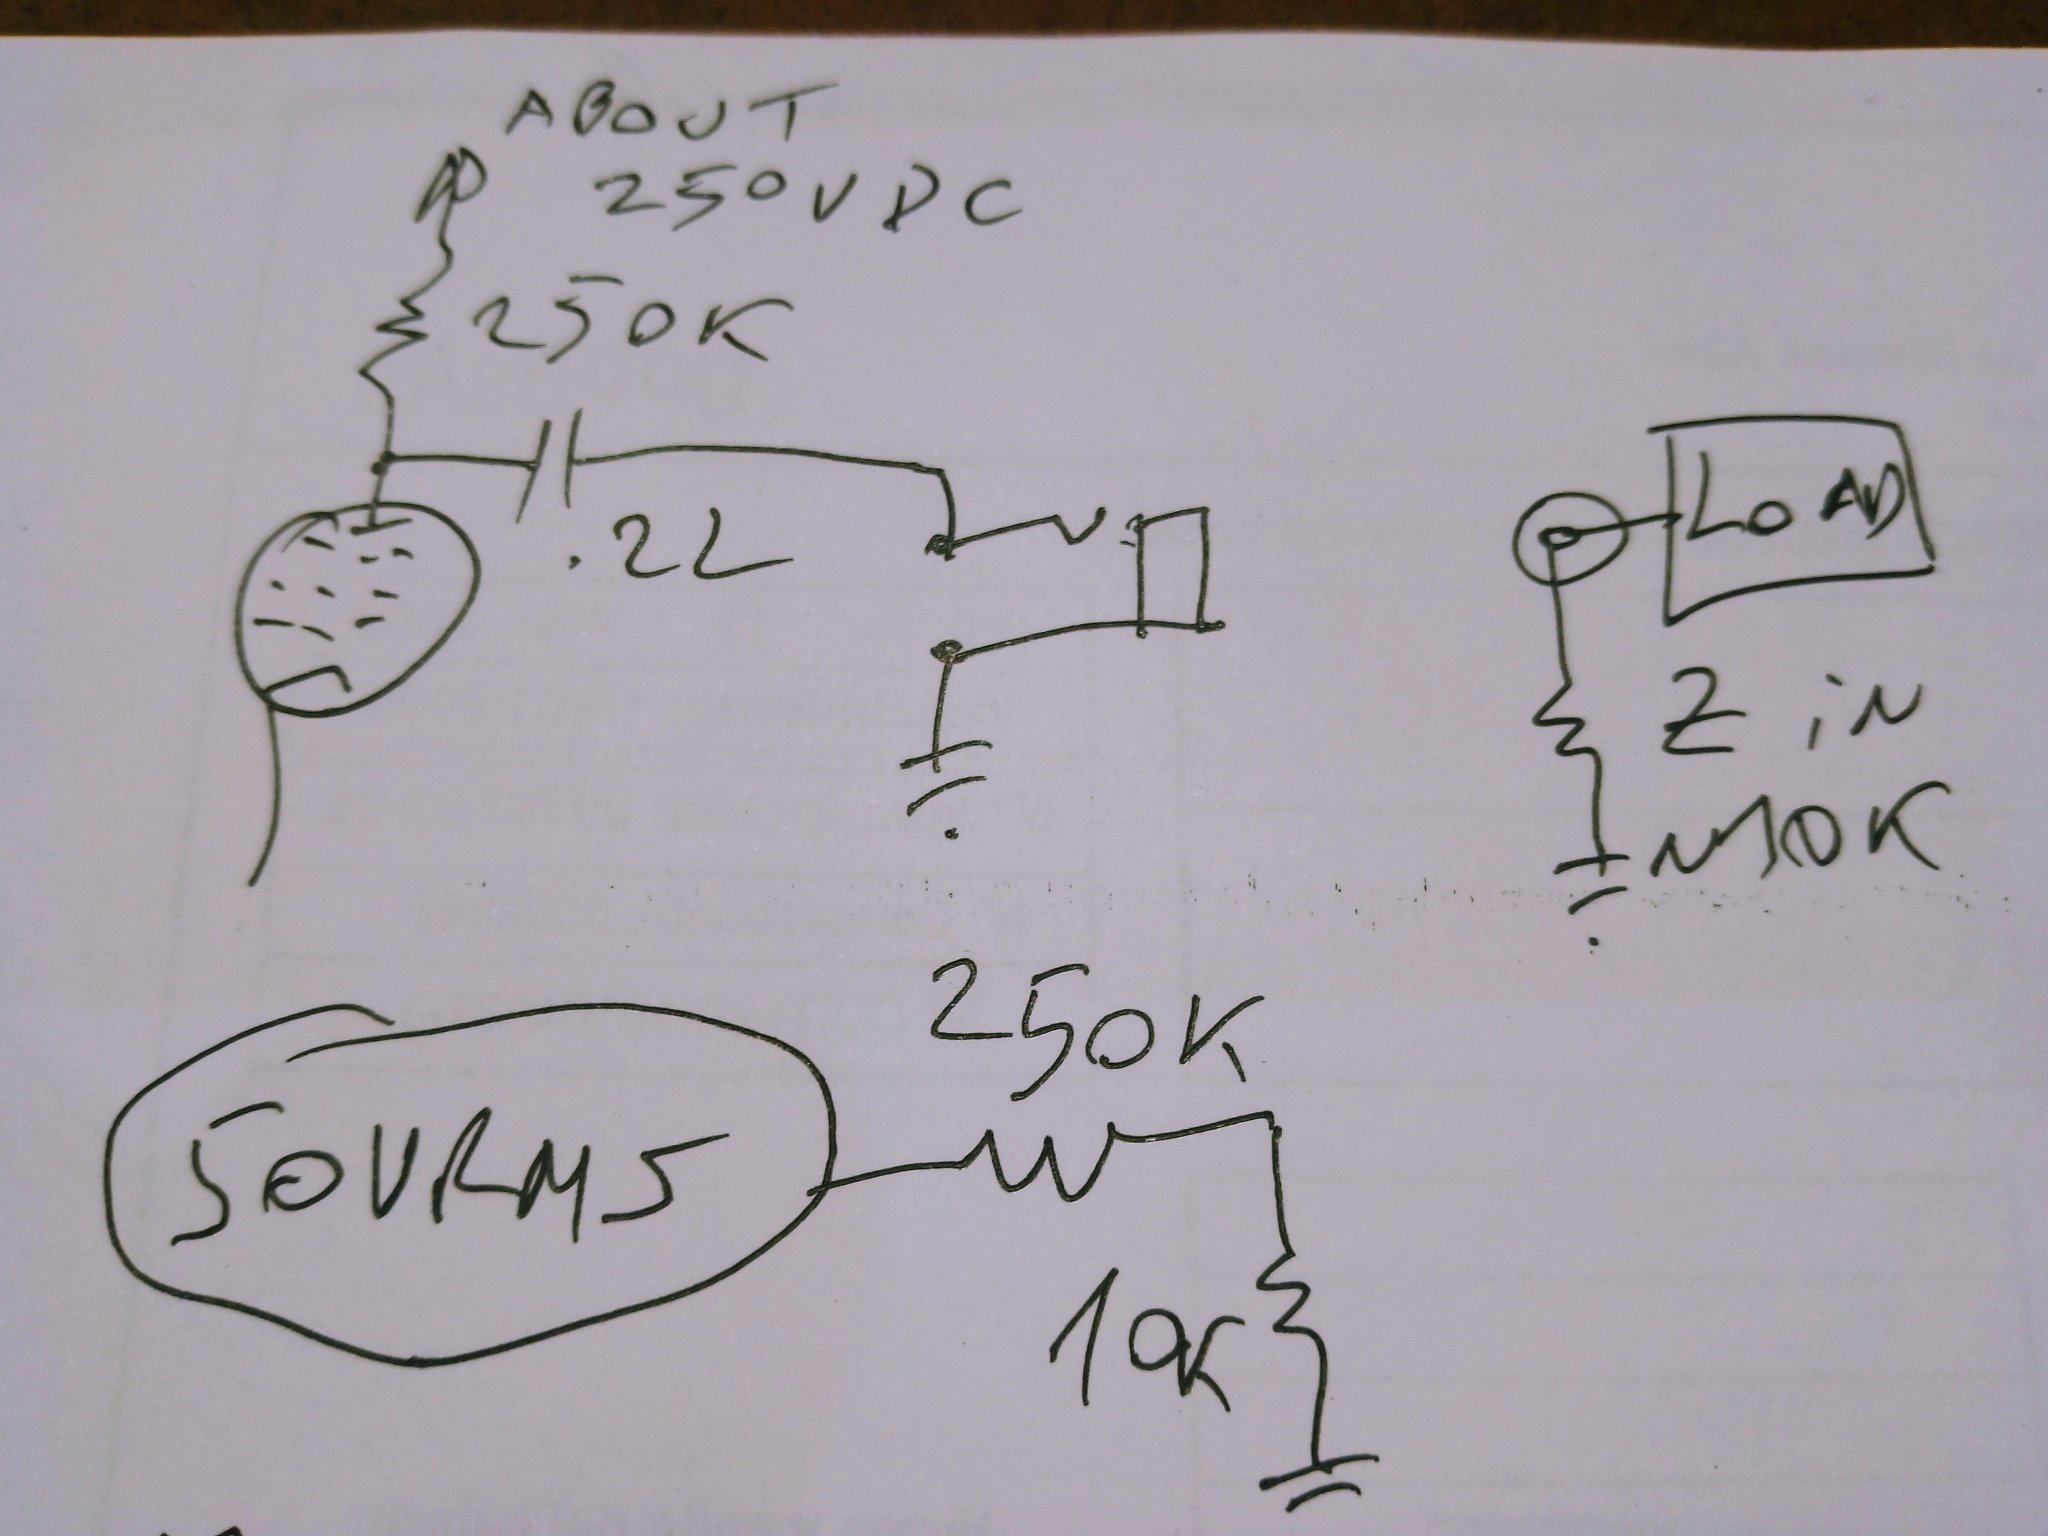 ABOUT
250VDC
250K
.22
LOAD
Z iN
~10K
250K
50VRMS
10K